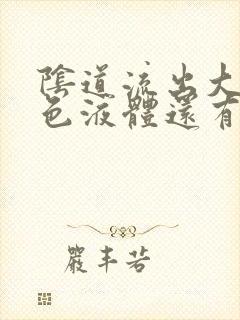 陰道流出大
色液體還有
嚴丰若